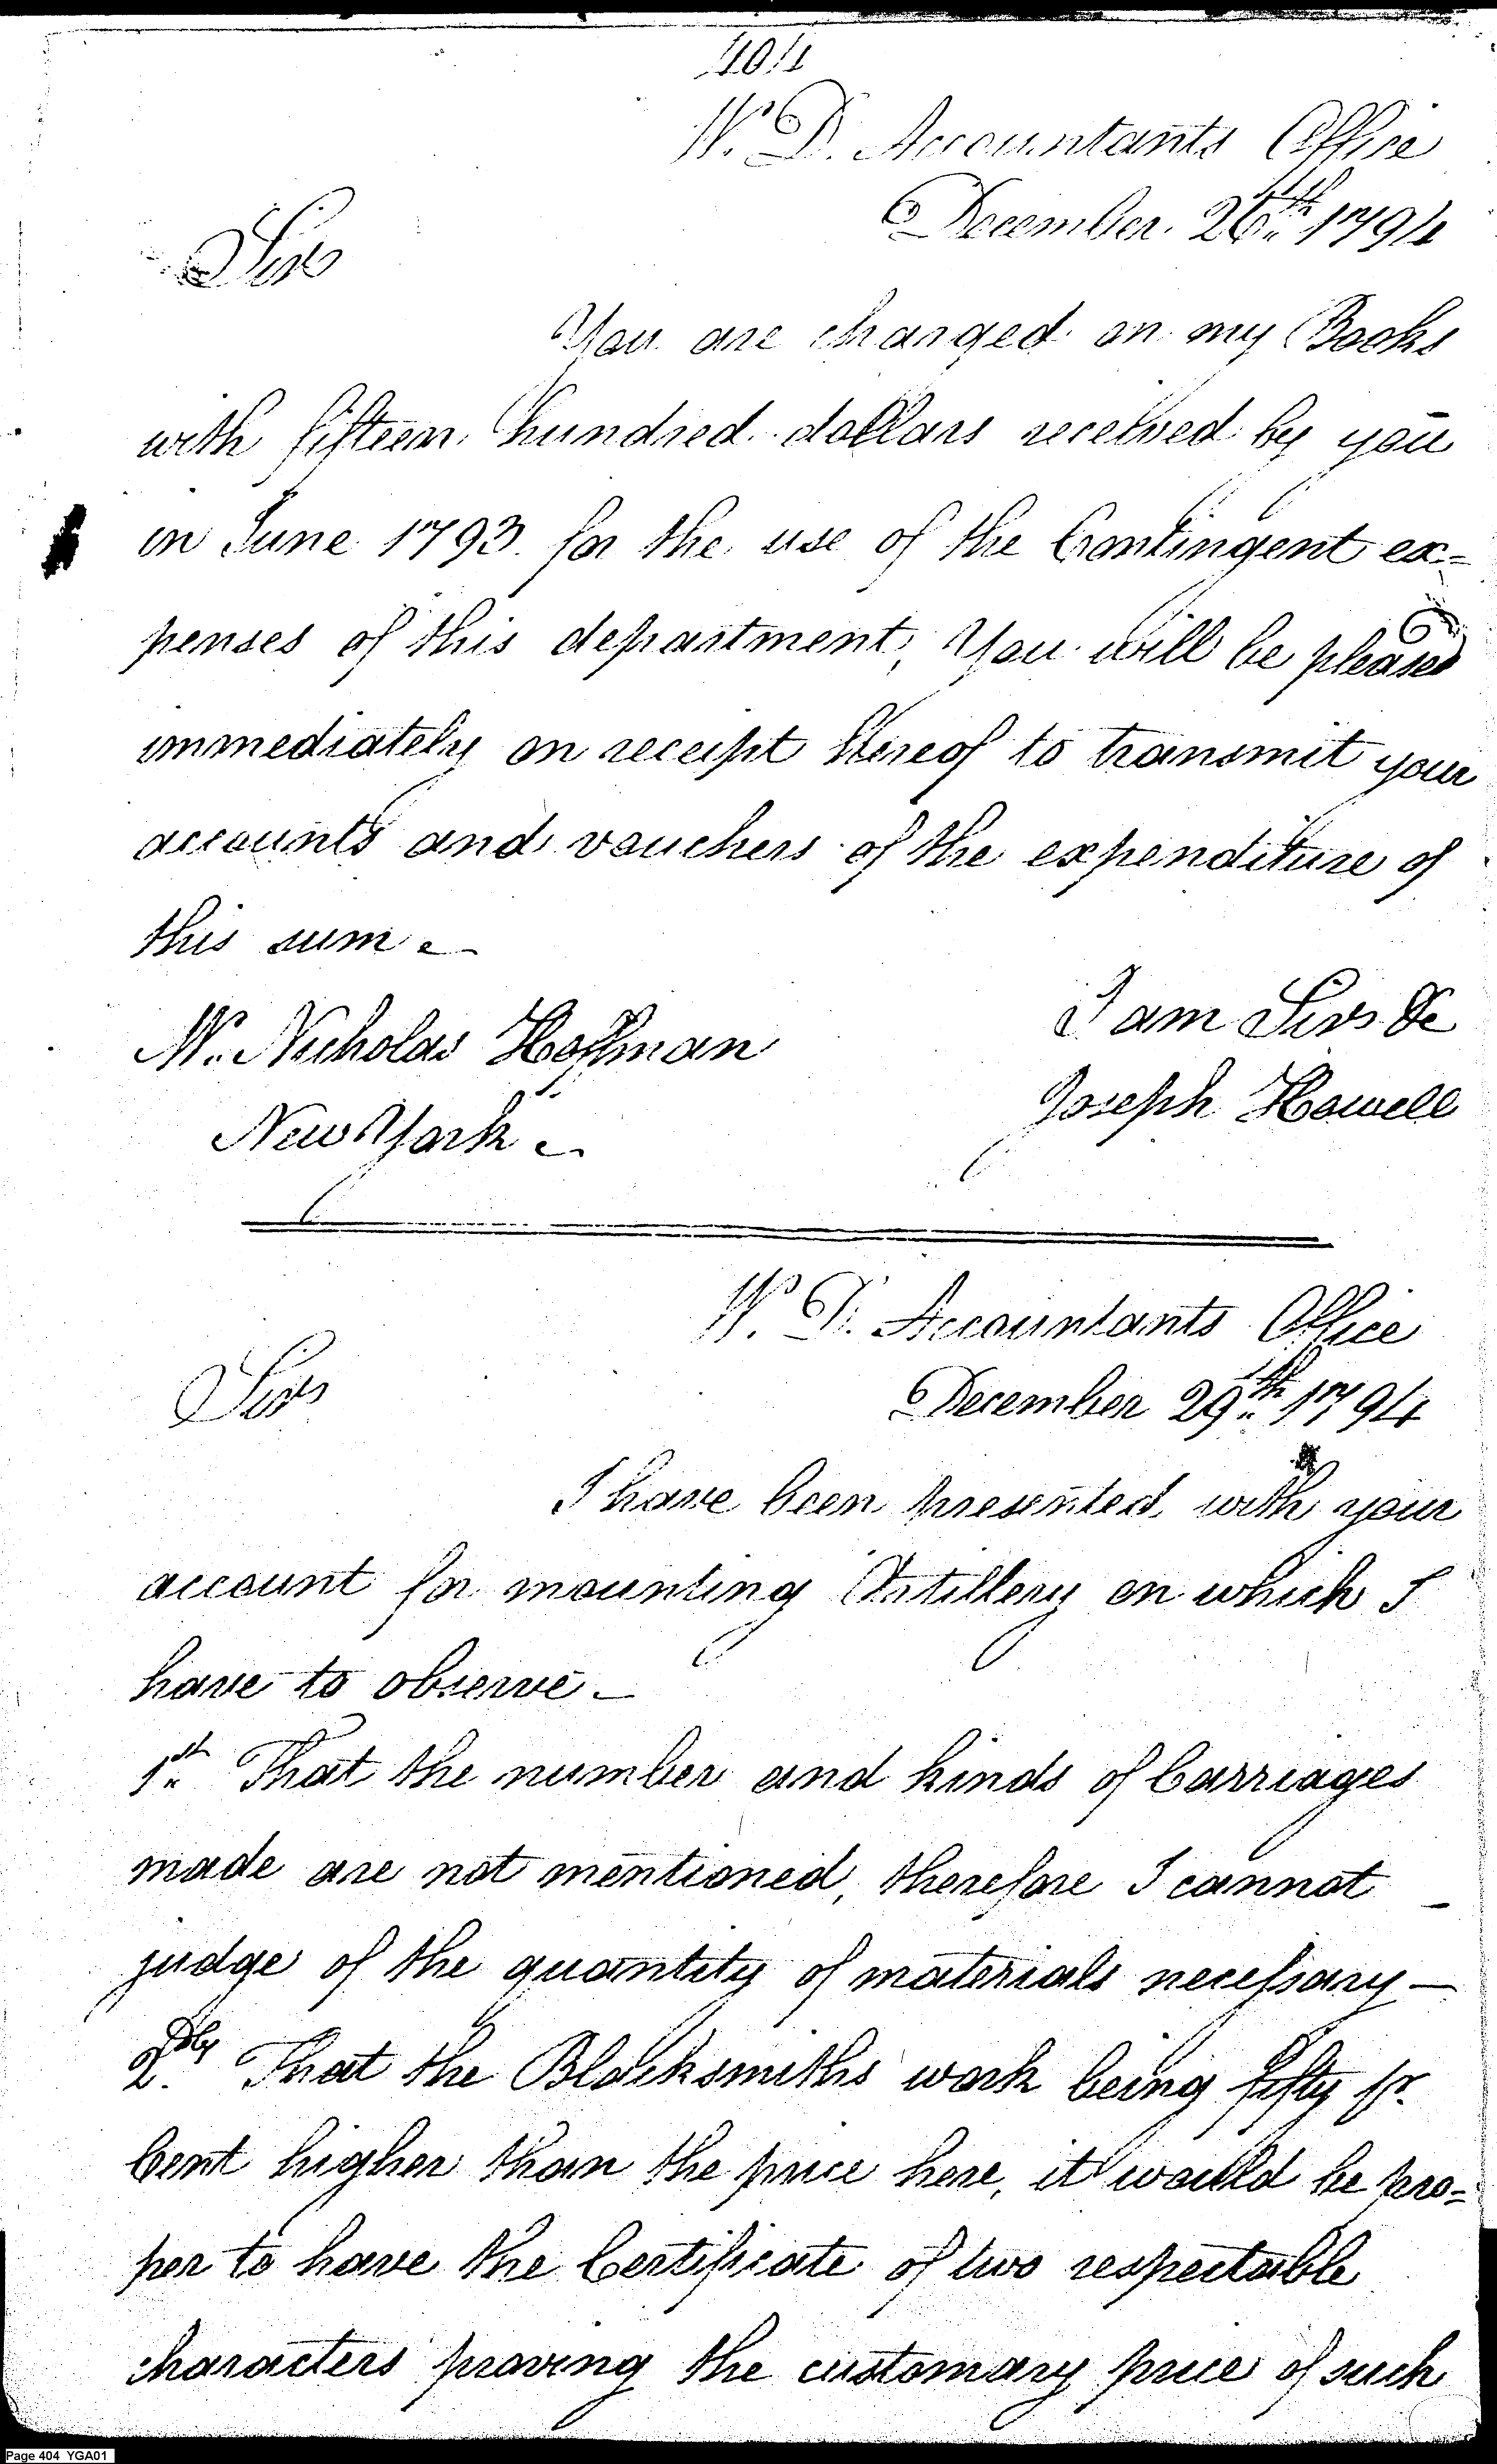 404
W. D. Accountants Office
December 26th 1794
Sir
You are charged on my Books
with fifteen hundred dollars received by you
in June 1793 for the use of the Contingent ex=
penses of this department, You will be pleased
immediately on receipt hereof to transmit your
accounts and vouchers of the expenditure of
this sum.
I am Sir &c
Mr. Nicholas Hoffman
Joseph Howell
New York
W. D. Accountants Office
December 29th 1794
Sir
I have been presented with your
account for mounting Artillery on which I
have to observe
1st That the number and kinds of Carriages
made are not mentioned, therefore I cannot
judge of the quantity of materials necessary—
2dly That the Blacksmiths work being fifty pr.
Cent higher than the price here, it would be pro=
per to have the Certificate of two respectable
characters proving the customary price of such
Page 404 YGA01